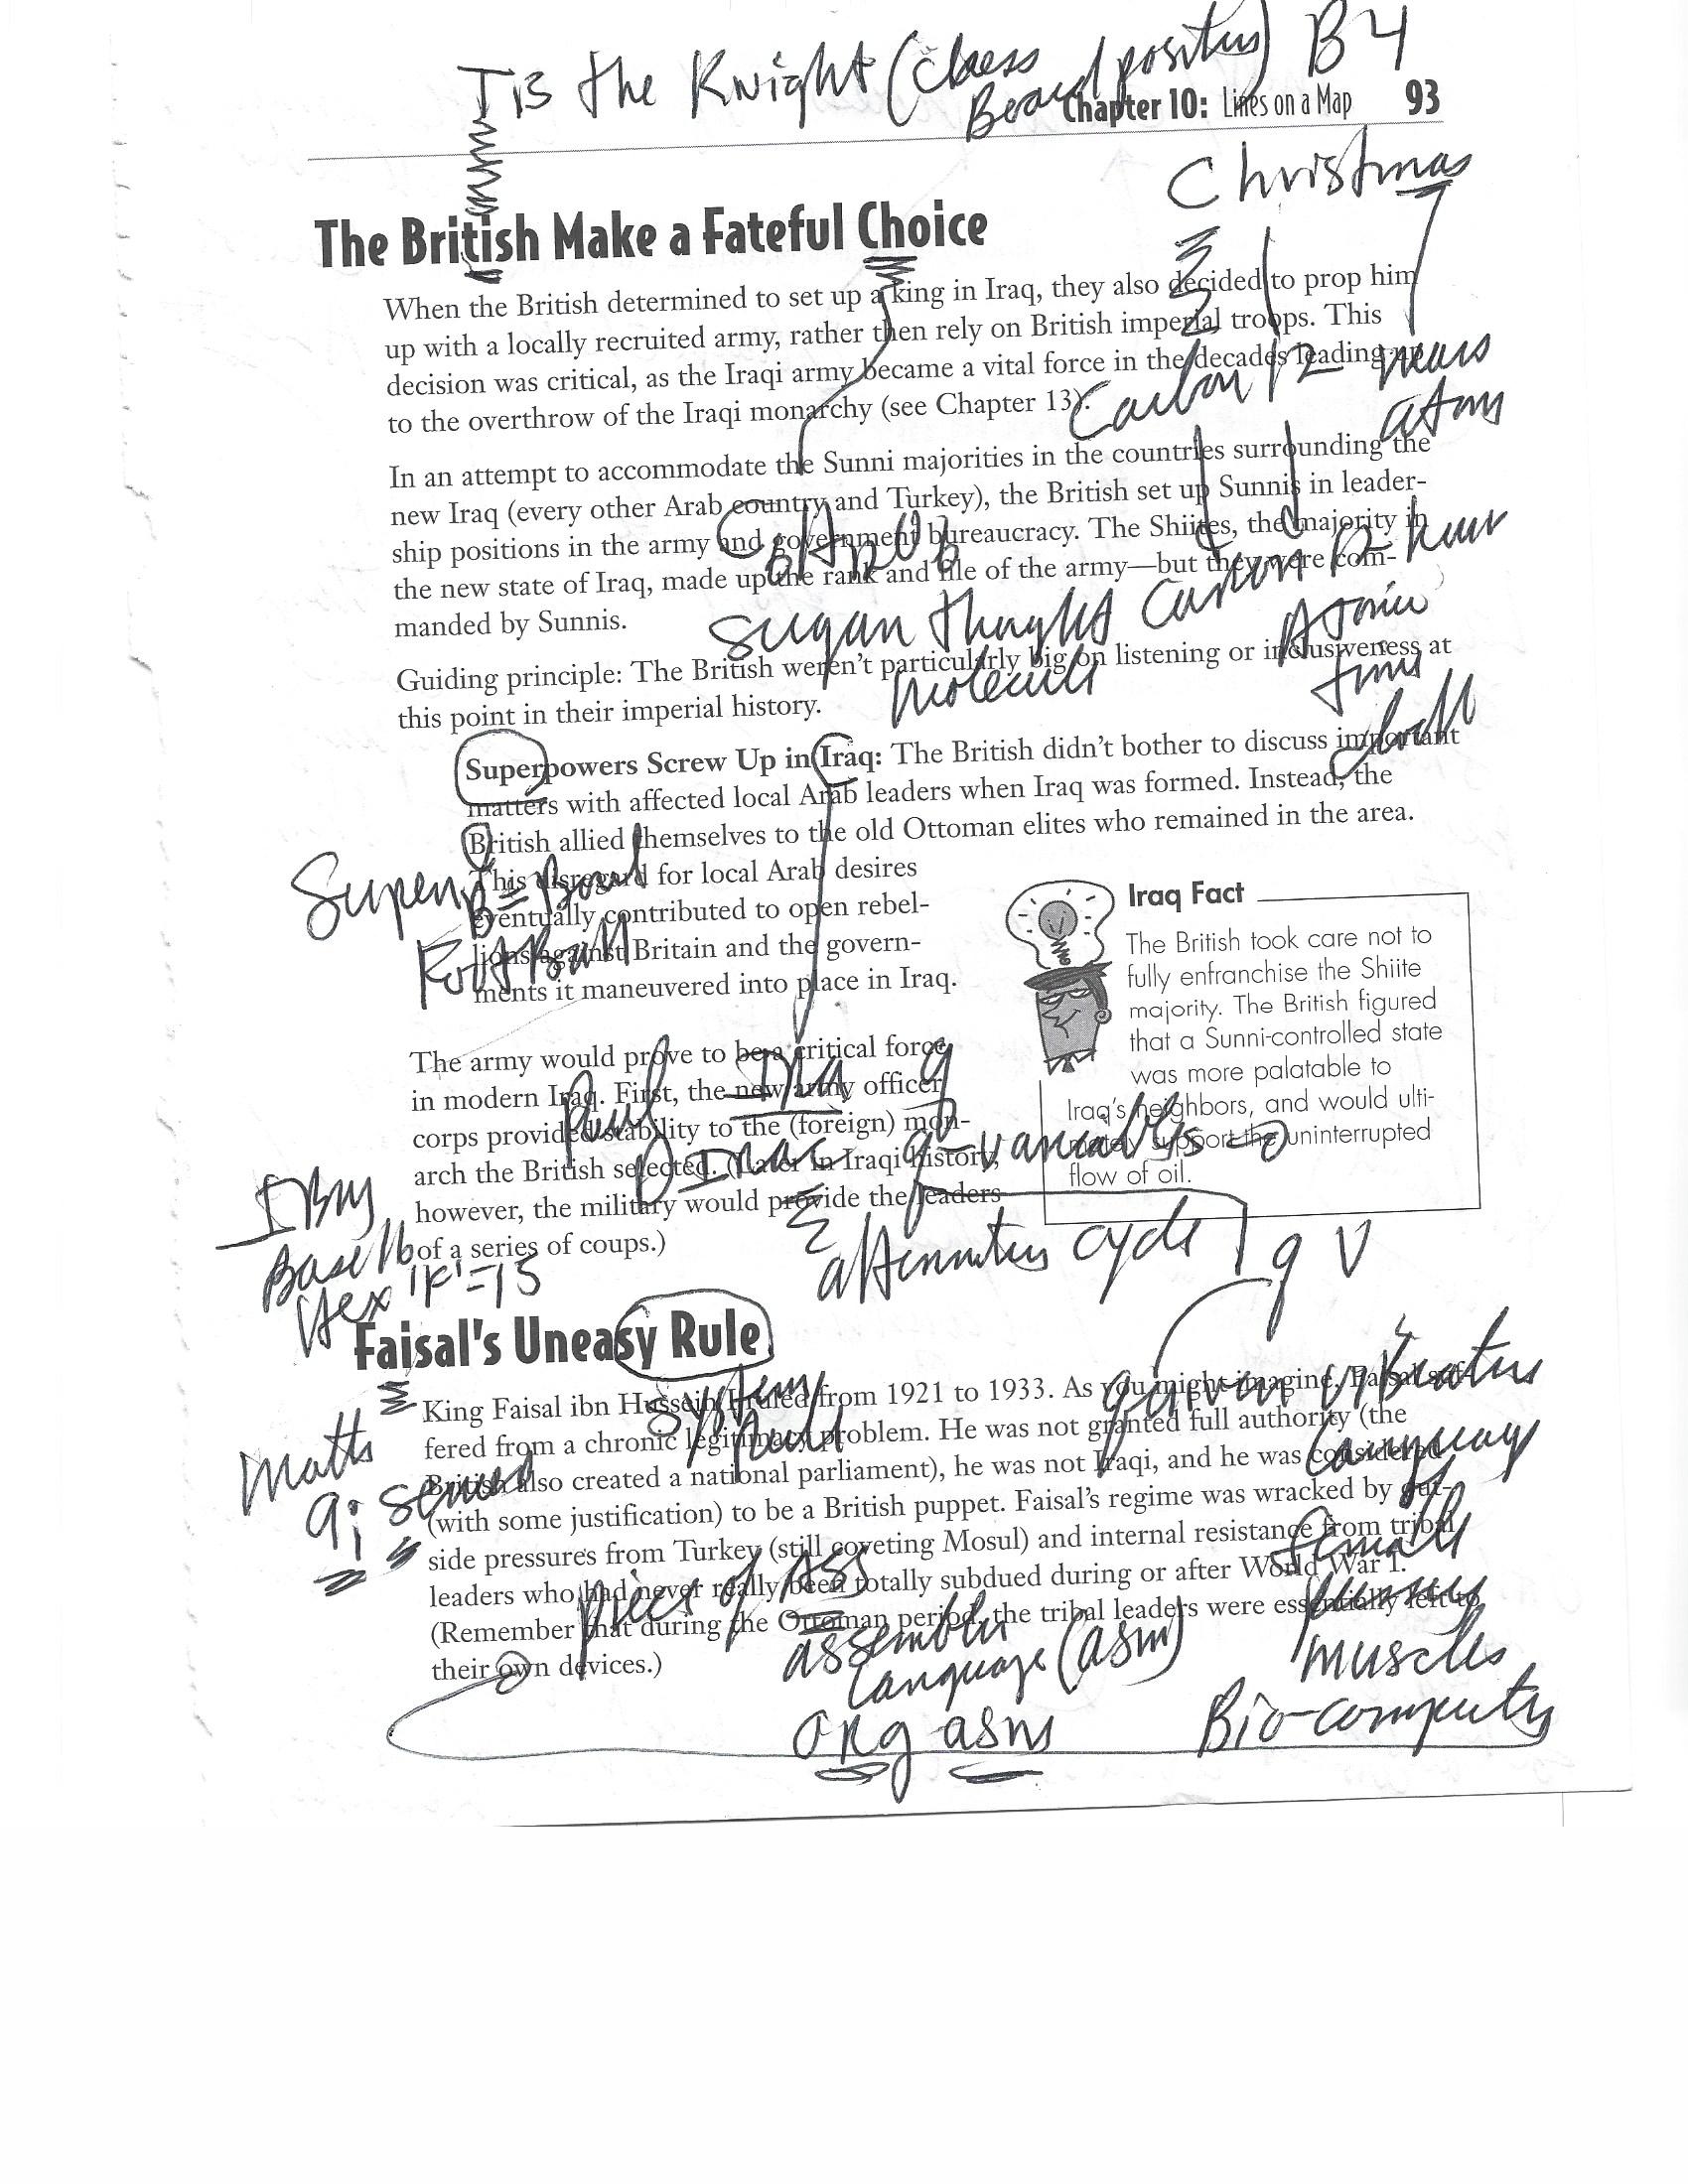 TIS the Knight (chess
Board position) B4
Chapter 10: Lines on a Map 93
Christmas
The British Make a Fateful Choice
When the British determined to set up a king in Iraq, they also decided to prop him
up with a locally recruited army, rather then rely on British imperial troops. This
decision was critical, as the Iraqi army became a vital force in the decades leading up
to the overthrow of the Iraqi monarchy (see Chapter 13).
Carbon 12 means
atoms
In an attempt to accommodate the Sunni majorities in the countries surrounding the
new Iraq (every other Arab country and Turkey), the British set up Sunnis in leader-
ship positions in the army and government bureaucracy. The Shiites, the majority in
the new state of Iraq, made up the rank and file of the army—but they were com-
manded by Sunnis.
sugar thought Carbon 12 hour
molecule
Atomic
time
Guiding principle: The British weren't particularly big on listening or inclusiveness at
this point in their imperial history.
Superpowers Screw Up in Iraq: The British didn't bother to discuss important
matters with affected local Arab leaders when Iraq was formed. Instead, the
British allied themselves to the old Ottoman elites who remained in the area.
This disregard for local Arab desires
eventually contributed to open rebel-
lions against Britain and the govern-
ments it maneuvered into place in Iraq.
Super Bowl
FootBall
Iraq Fact
The British took care not to
fully enfranchise the Shiite
majority. The British figured
that a Sunni-controlled state
was more palatable to
Iraq's neighbors, and would ulti-
mately support the uninterrupted
flow of oil.
The army would prove to be a critical force
in modern Iraq. First, the new army officer
corps provided stability to the (foreign) mon-
arch the British selected. (Later in Iraqi history,
however, the military would provide the leaders
of a series of coups.)
q-variables
IBM
Base 16
Hex 'F'=15
cycle
g V
Faisal's Uneasy Rule
King Faisal ibn Hussein I ruled from 1921 to 1933. As you might imagine, Faisal suf-
fered from a chronic legitimacy problem. He was not granted full authority (the
British also created a national parliament), he was not Iraqi, and he was considered
(with some justification) to be a British puppet. Faisal's regime was wracked by out-
side pressures from Turkey (still coveting Mosul) and internal resistance from tribal
leaders who had never really been totally subdued during or after World War I.
(Remember that during the Ottoman period, the tribal leaders were essentially left to
their own devices.)
system
language
female
piece of ASS
assembler
Language (asm)
orgasm
muscles
Bio-computer